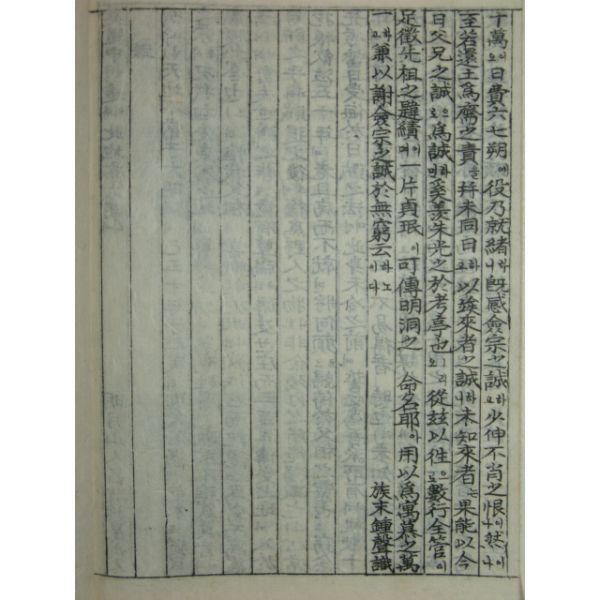 十萬이요日費六七朔에役乃就緖하니旣感僉宗之誠하고少伸不肖之恨이나然이나
至若還土爲齋之責을幷未同日하고以竢來者之誠하니未知來者는果能以今
日父兄之誠으로爲誠하면奚羡朱光之於考亭也리오從玆以往으로數行全管이
足徵先祖之蹟績이며一片貞珉이可傳明洞之命名耶아用以爲寓慕之萬
一하고兼以謝僉宗之誠於無窮云하노이다
族末鍾聲識